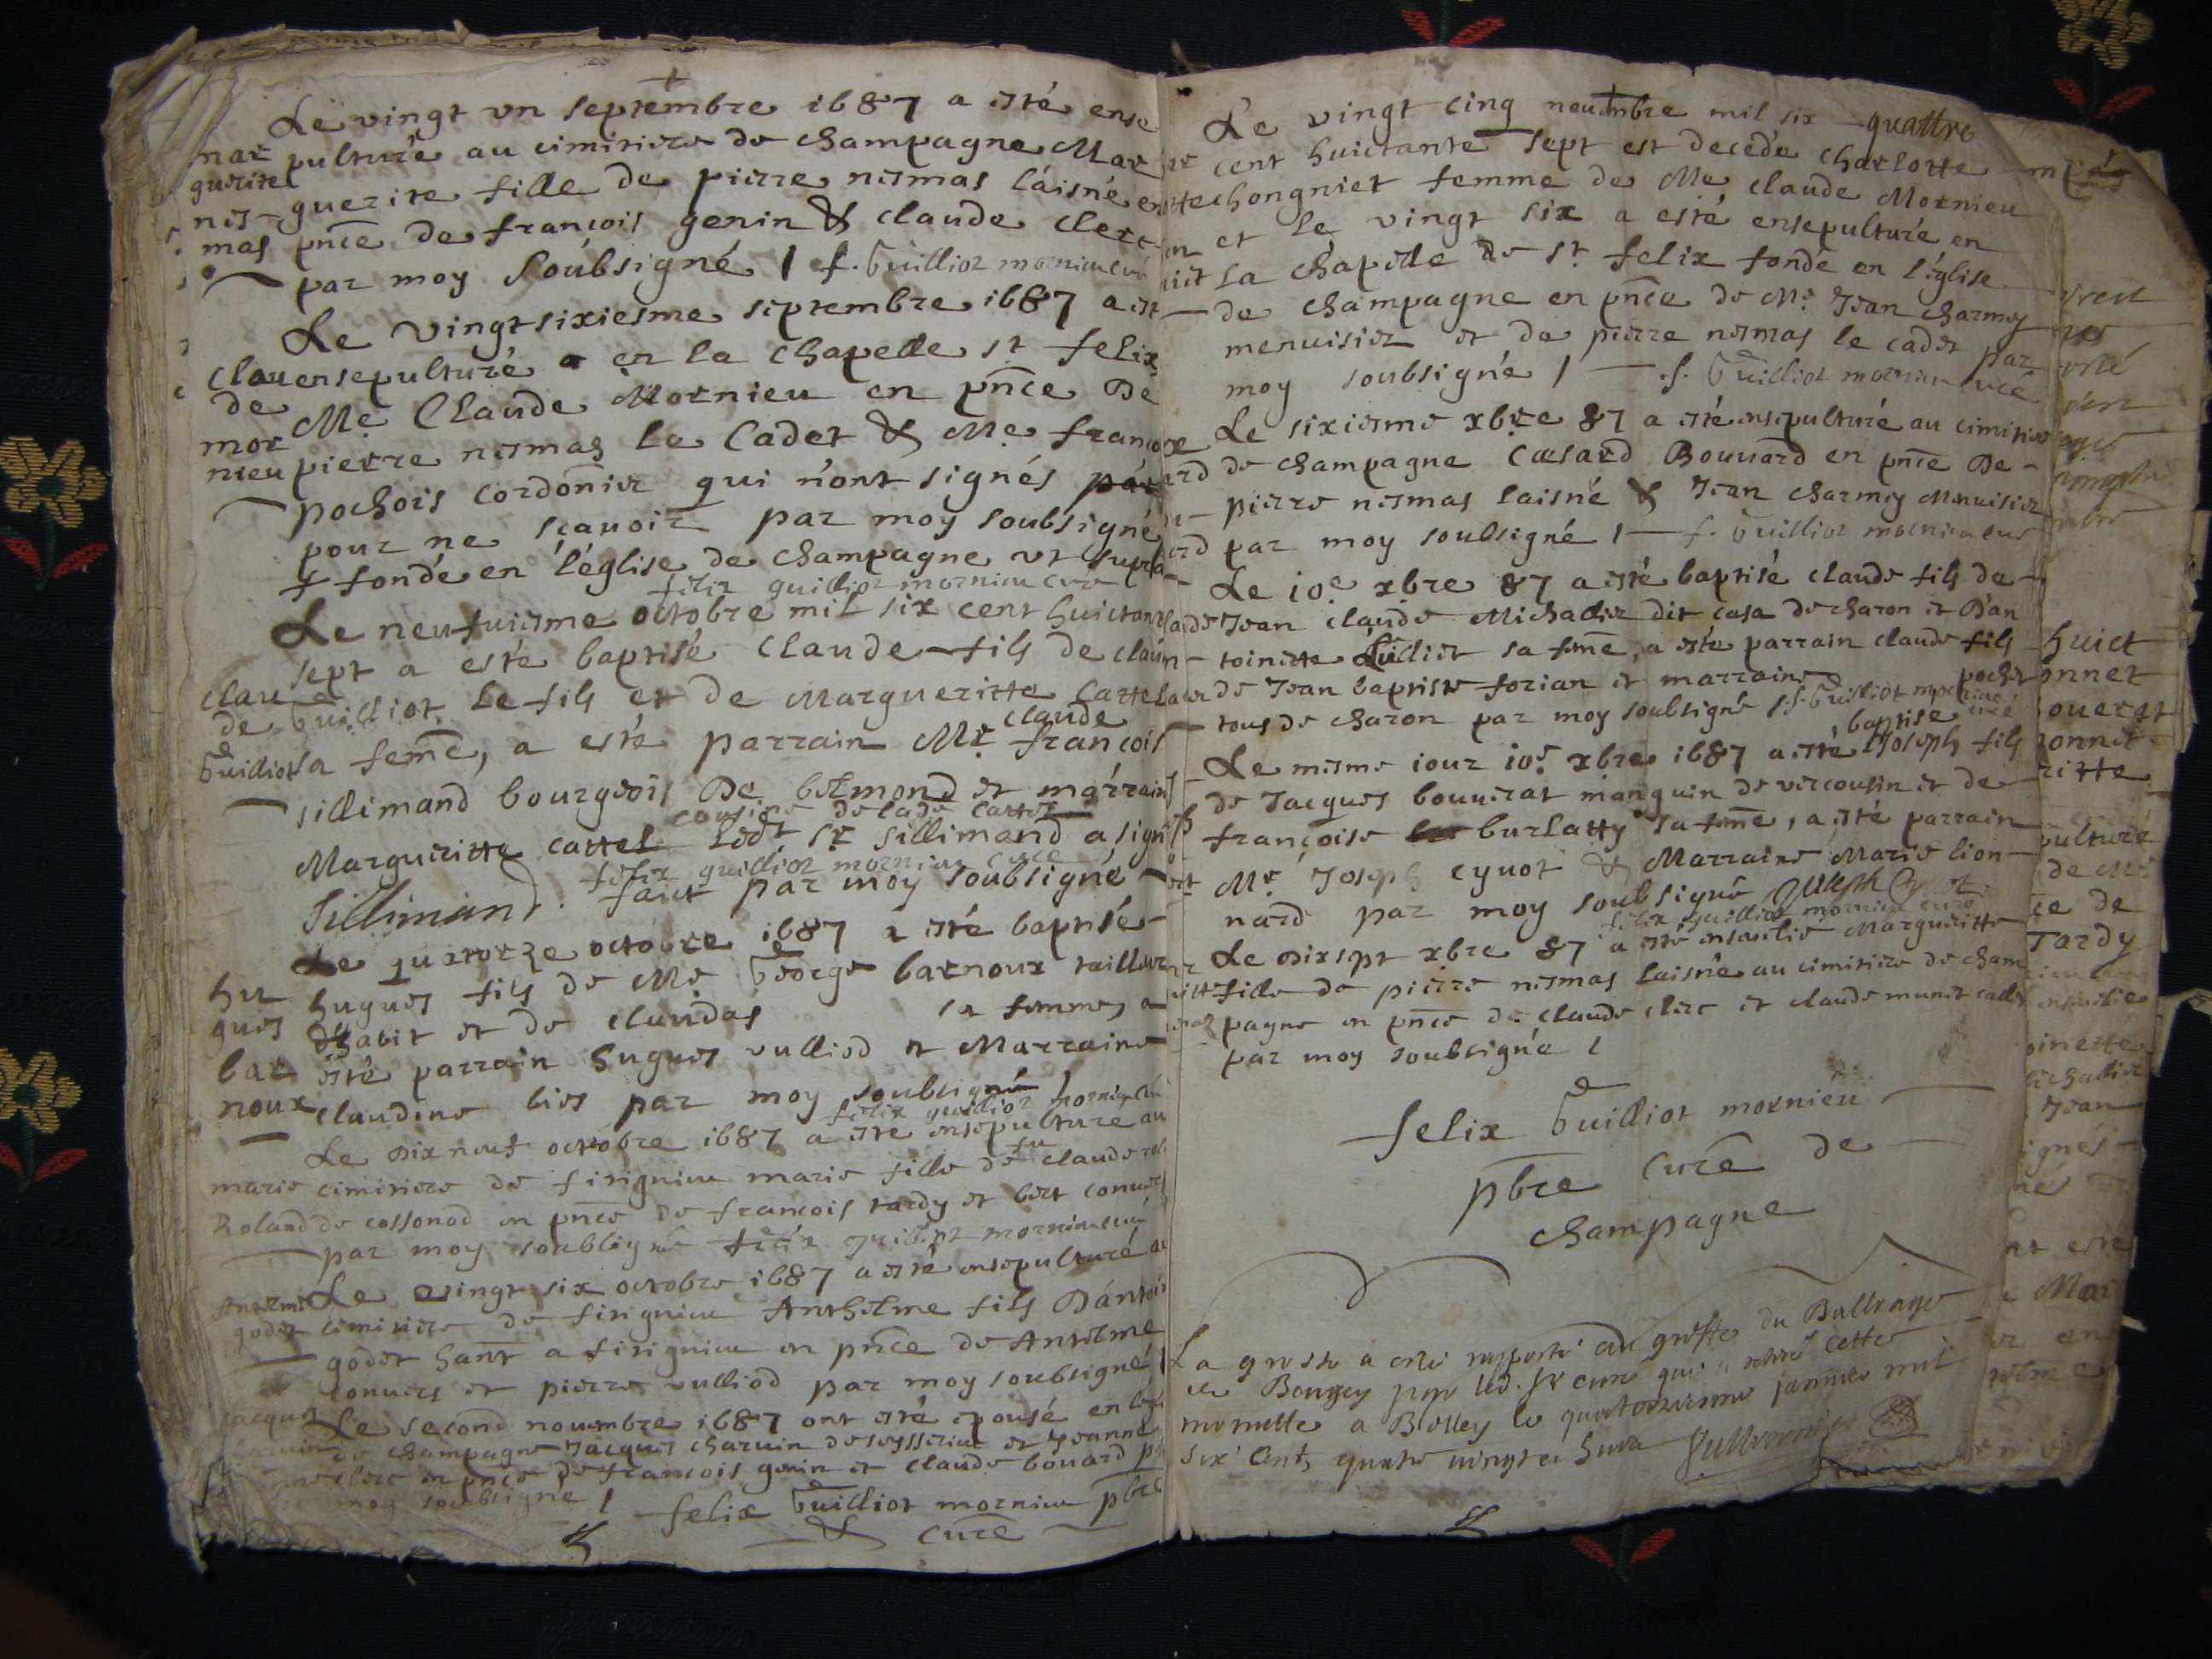 Le vingt un septembre 1687 a esté ense
mar pulturée au cimitiere de champagne Mar
guerite
nes- guerite fille de pierre nesmas laisné en
mas pnce de françois genin & claude clerc
par moy soubsigné / f. Guilliot mornieu curé
Le vingtsixiesme septembre 1687 a est
clau ensepulturé en la chapelle st felix
de
mor Me Claude Mornieu en pnce De
nieu pierre nesmas le Cadet & Me franco
pochois cordonier qui n'ont signés
pour ne sçauoir par moy soubsigné
+ fondée en l'église de champagne ut supra
felix guilliot mornieu curé
Le neufuiesme octobre mil six cent huictan
sept a esté baptisé Claude fils de clau
clau
de Guilliot Le fils et de Margueritte Cattel
Guilliot sa feme, a esté parrain Mr claude françois
sillimand bourgeois De belmond et marrain
cousine de lade cattel
Margueritte cattel Ledt sr sillimand a sign
felix guilliot mornieu curé
Sillimand. faict par moy soubsigné
Le quatorze octobre 1687 a esté baptisé
hu hugues fils de Me George barnoux tailleur
gues d'habit et de claudas sa femme, a
bar esté parrain hugues vulliod et Marraine
noux claudine bies par moy soubsigné /
felix guilliot mornieu curé
Le dix neuf octobre 1687 a esté ensepulturé au
marie cimitiere de firignieu marie fille de fu claude
Roland de cossonod en pnce de françois tardy et bert conuers
par moy soubsigné felix guilliot mornieu curé
Le vingt six octobre 1687 a esté ensepulturé au
Antelme
godet cimitiere de firignieu Anthelme fils D'antoi
godet hant a firignieu en pnce de Antelme
conuers et pierre vulliod par moy soubsigné /
Jacques Le second nouembre 1687 ont esté epousé en
charuin de champagne Jacques charuin de et Jeanne
clerc en pnce de françois genin et claude bouard p
moy soubsigné / felix Guilliot mornieu pbre
& curé
Le vingt cinq nouembre mil six quattre
cent huictante sept est decedée charlotte
chongniet femme de Me claude Mornieu
et le vingt six a esté ensepulturée en
la chapelle de st felix fondé en l'église
de champagne en pnce de Me Jean charmey
menuisier et de pierre nesmas le cadet par
moy soubsigné / f. Guilliot mornieu curé
Le sixiesme xbre 87 a esté ensepulturé au cimitiere
de champagne Cæsard Bouuard en pnce De
pierre nesmas laisné & Jean charmey Menuisier
par moy soubsigné / f. Guilliot mornieu curé
Le 10e xbre 87 a esté baptisé claude fils de
Jean claude Michallier dit casa de charon et D'an
toinette Lulliet sa feme, a esté parrain claude fils
de Jean baptiste forian et marraine pochet
tous de charon par moy soubsigné / f. Guilliot mornieu curé
Le mesme iour 10e xbre 1687 a esté baptisé Joseph fils
de Jacques bouuerat manguin de vircousin et de
françoise burlatty sa feme, a esté parrain
Me Joseph cynot & Marraine Marie lion
nard par moy soubsigné Joseph Cynot
felix guilliot mornieu curé
Le dixsept xbre 87 a esté enseuelie Margueritte
fille de pierre nesmas laisné au cimitiere de cham
pagne en pnce de claude clerc et claude munet cadet
par moy soubsigné /
felix Guilliot mornieu
pbre curé de
champagne
La grosse a esté rapporté au greffe du Balliage
de Beugey par led. sr curé qui a retiré cette
minutte a Belley le quatorziesme januier mil
six cents quatre vingtz huict
huict
onnet
ouerat
ritte
pulturé
de Me
ce de
Tardy
inette
challier
Jean
ignés
nt esté